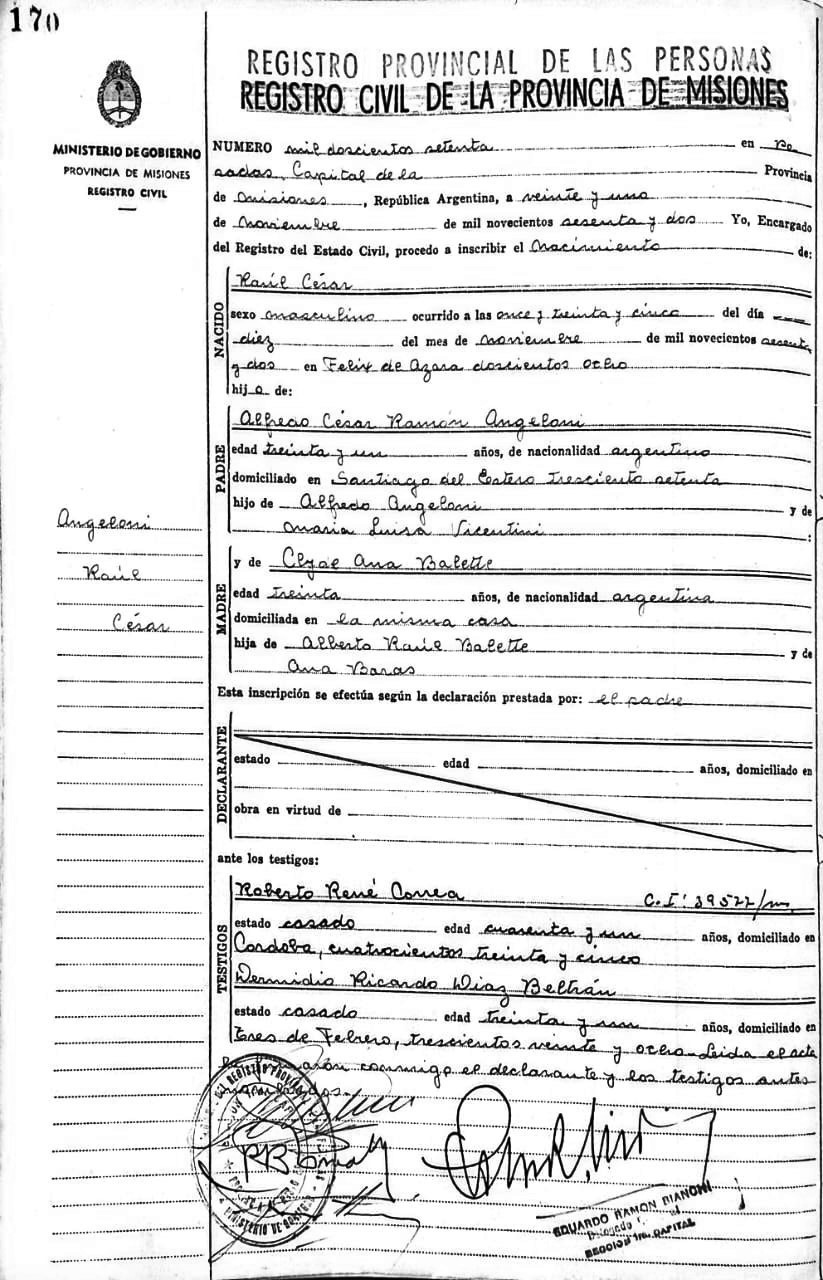 170
REGISTRO PROVINCIAL DE LAS PERSONAS
REGISTRO CIVIL DE LA PROVINCIA DE MISIONES
MINISTERIO DE GOBIERNO
PROVINCIA DE MISIONES
REGISTRO CIVIL
NUMERO mil doscientos setenta en Po
sadas, Capital de la Provincia
de Misiones, República Argentina, a veinte y uno
de Noviembre de mil novecientos sesenta y dos Yo, Encargado
del Registro del Estado Civil, procedo a inscribir el Nacimiento de:
NACIDO
Raúl César
sexo masculino ocurrido a las once y treinta y cinco del día
diez del mes de noviembre de mil novecientos sesenta
y dos en Felix de Azara doscientos ocho
hijo de:
PADRE
Alfredo César Ramón Angeloni
edad treinta y un años, de nacionalidad argentino
domiciliado en Santiago del Estero tresciento setenta
hijo de Alfredo Angeloni y de
Maria Luisa Vicentini :
Angeloni
Raúl
César
MADRE
y de Clyde Ana Balette
edad treinta años, de nacionalidad argentina
domiciliada en la misma casa
hija de Alberto Raúl Balette y de
Ana Baras
Esta inscripción se efectúa según la declaración prestada por: el padre
DECLARANTE
estado edad años, domiciliado en
obra en virtud de
ante los testigos:
TESTIGOS
Roberto René Correa C.I. 39522/m.
estado casado edad cuarenta y un años, domiciliado en
Cordoba, cuatrocientos treinta y cinco
Dermidio Ricardo Diaz Beltrán
estado casado edad treinta y un años, domiciliado en
tres de Febrero, trescientos veinte y ocho. Leida el acta
conmigo el declarante y los testigos antes
EDUARDO RAMON BIANCHI
Delegado
SECCION 1ra. CAPITAL